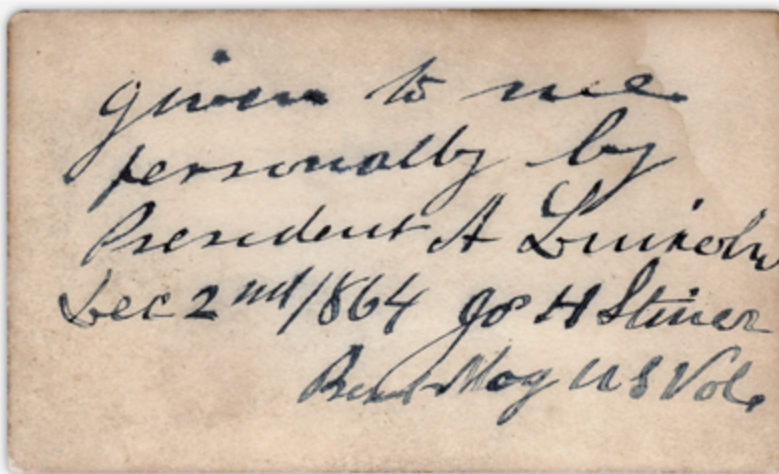 given to me
personally by
President A Lincoln
Dec 2nd/1864 Jos H Stiner
Bvt Maj U S Vol.